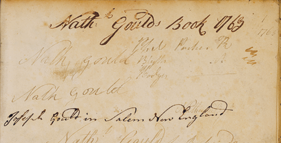 Nathl Goulds Book 1763
Nath Gould
Nath Gould
Joseph Gould in Salem New England
Nathl Gould